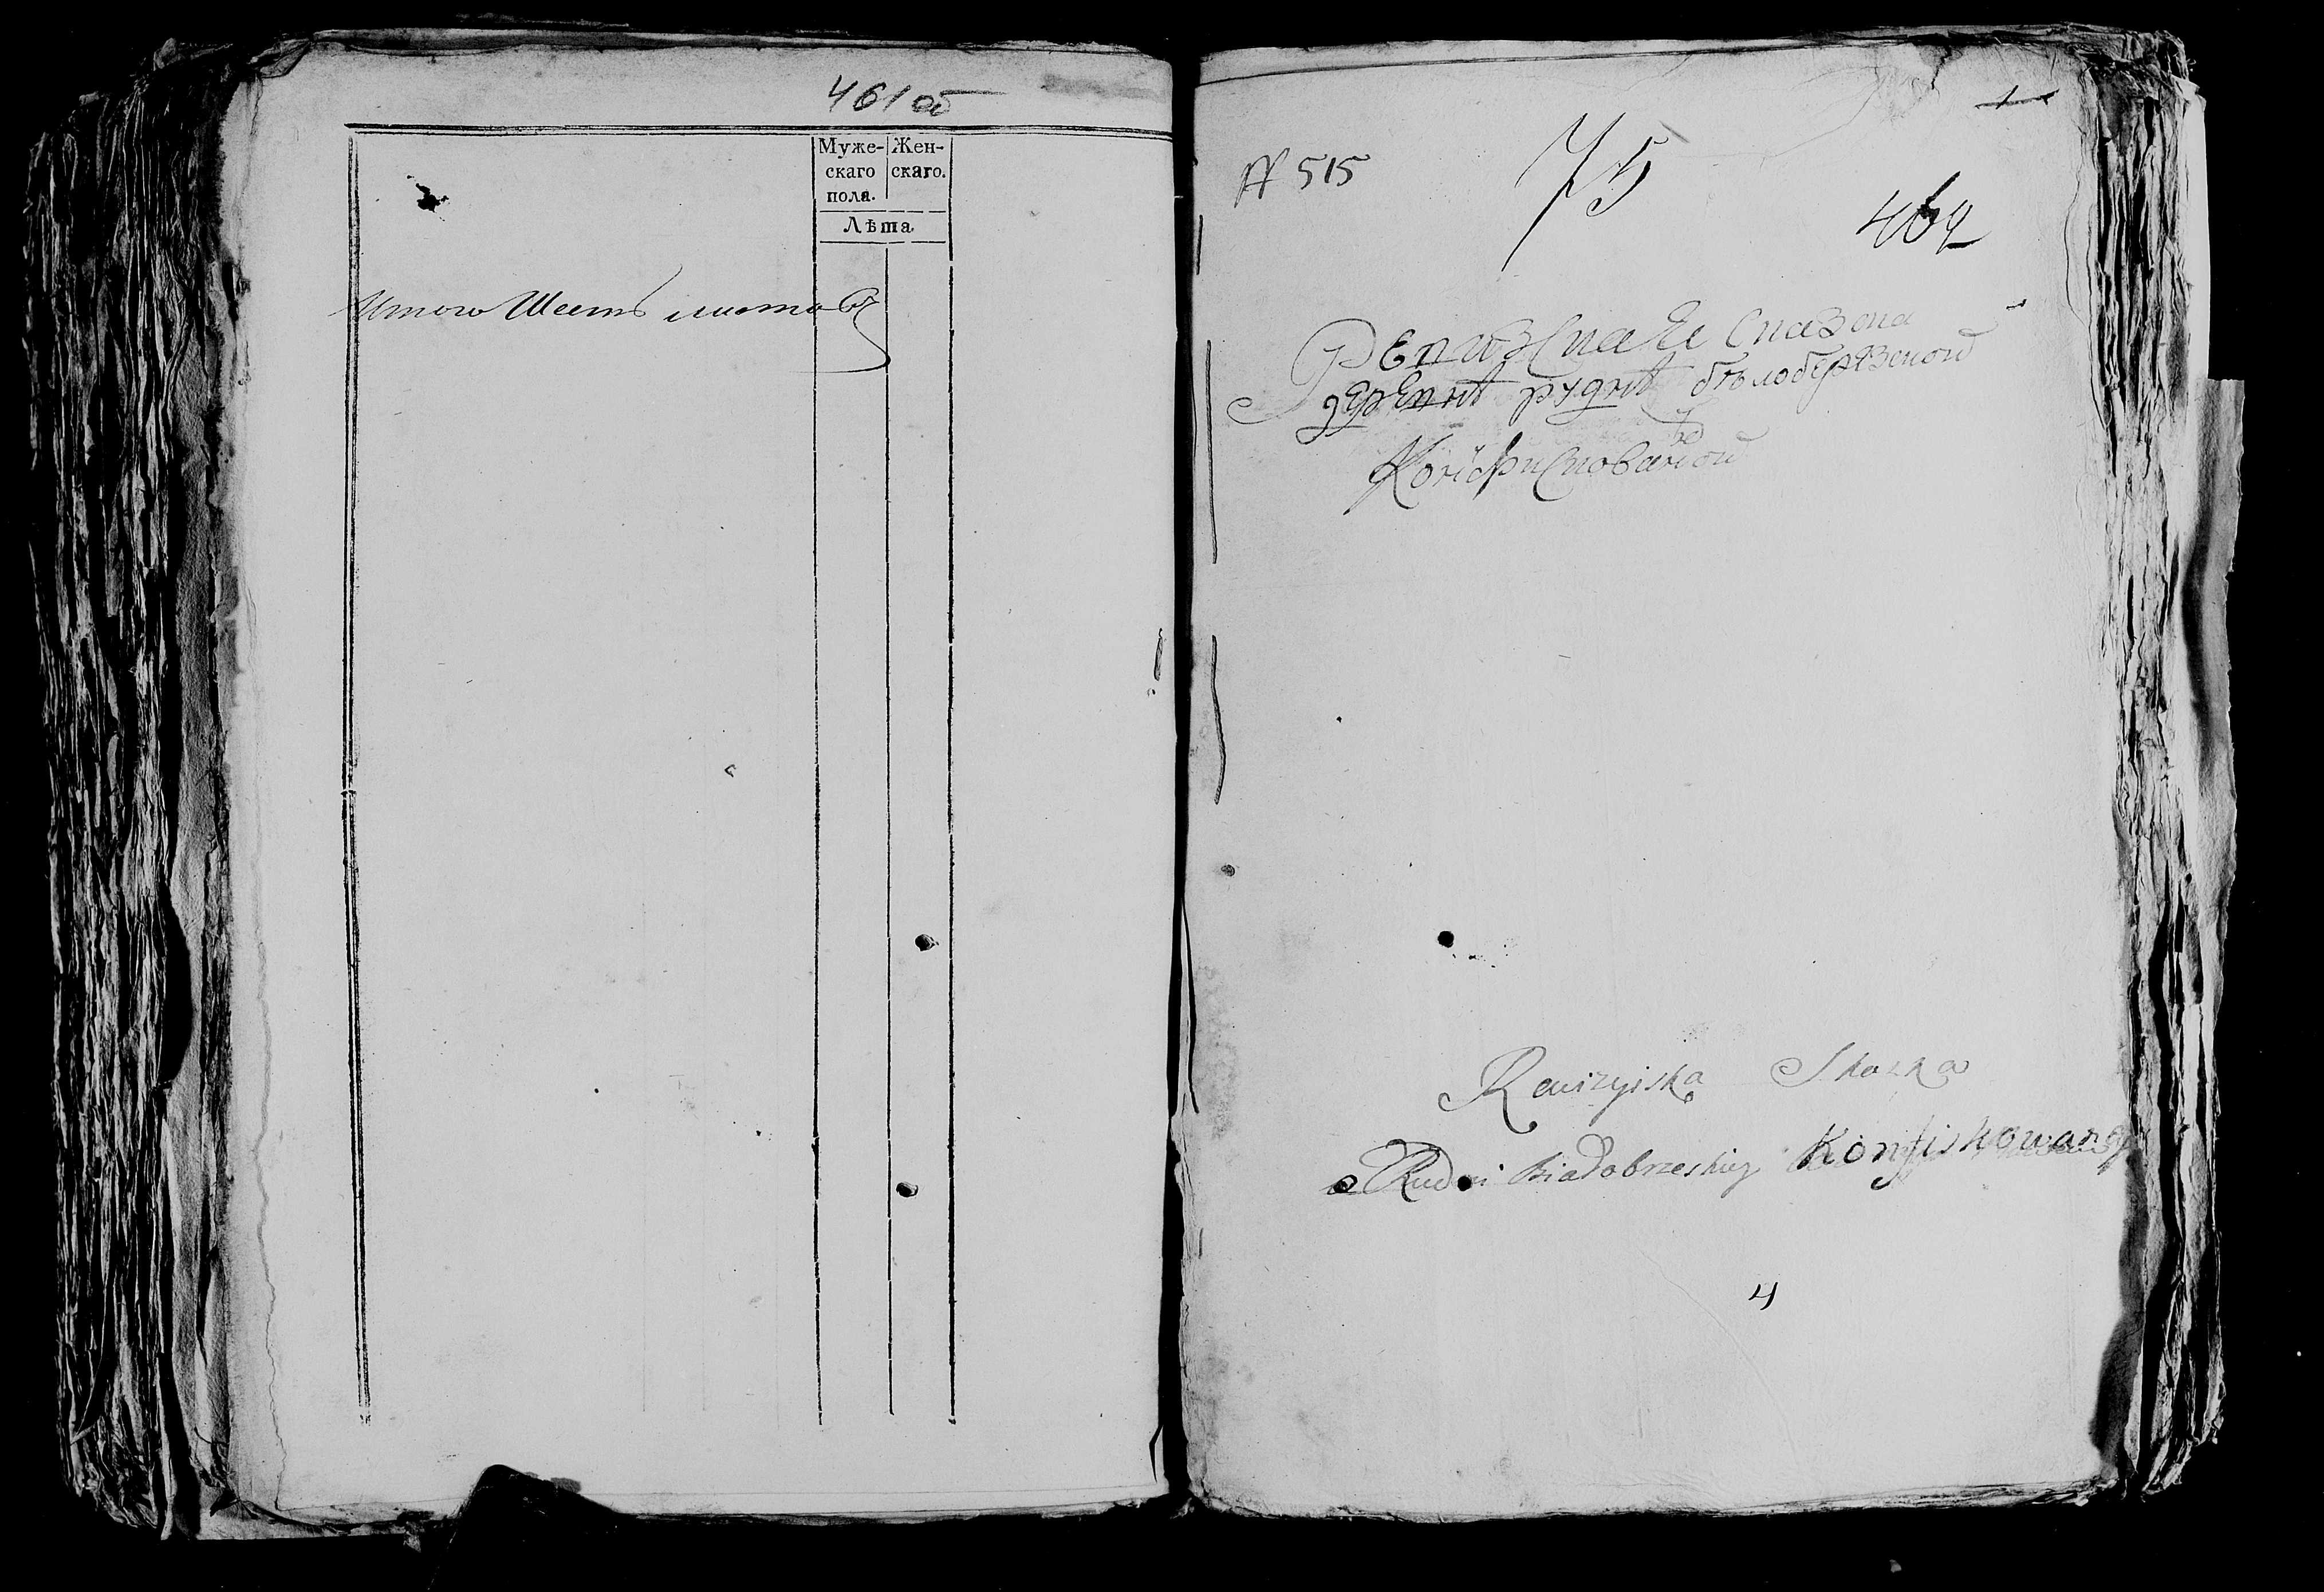 461 об
Муже- Жен-
скаго скаго.
пола.
Лѣта.
Итого Шесть листовъ
1
№ 515
75
462
Ревизская Сказка
деревнѣ руднѣ бѣлоберязской
Конфискованой
Rewizyiska Skazka
Rudni Białobrzeskiey Konfiskowaney
4